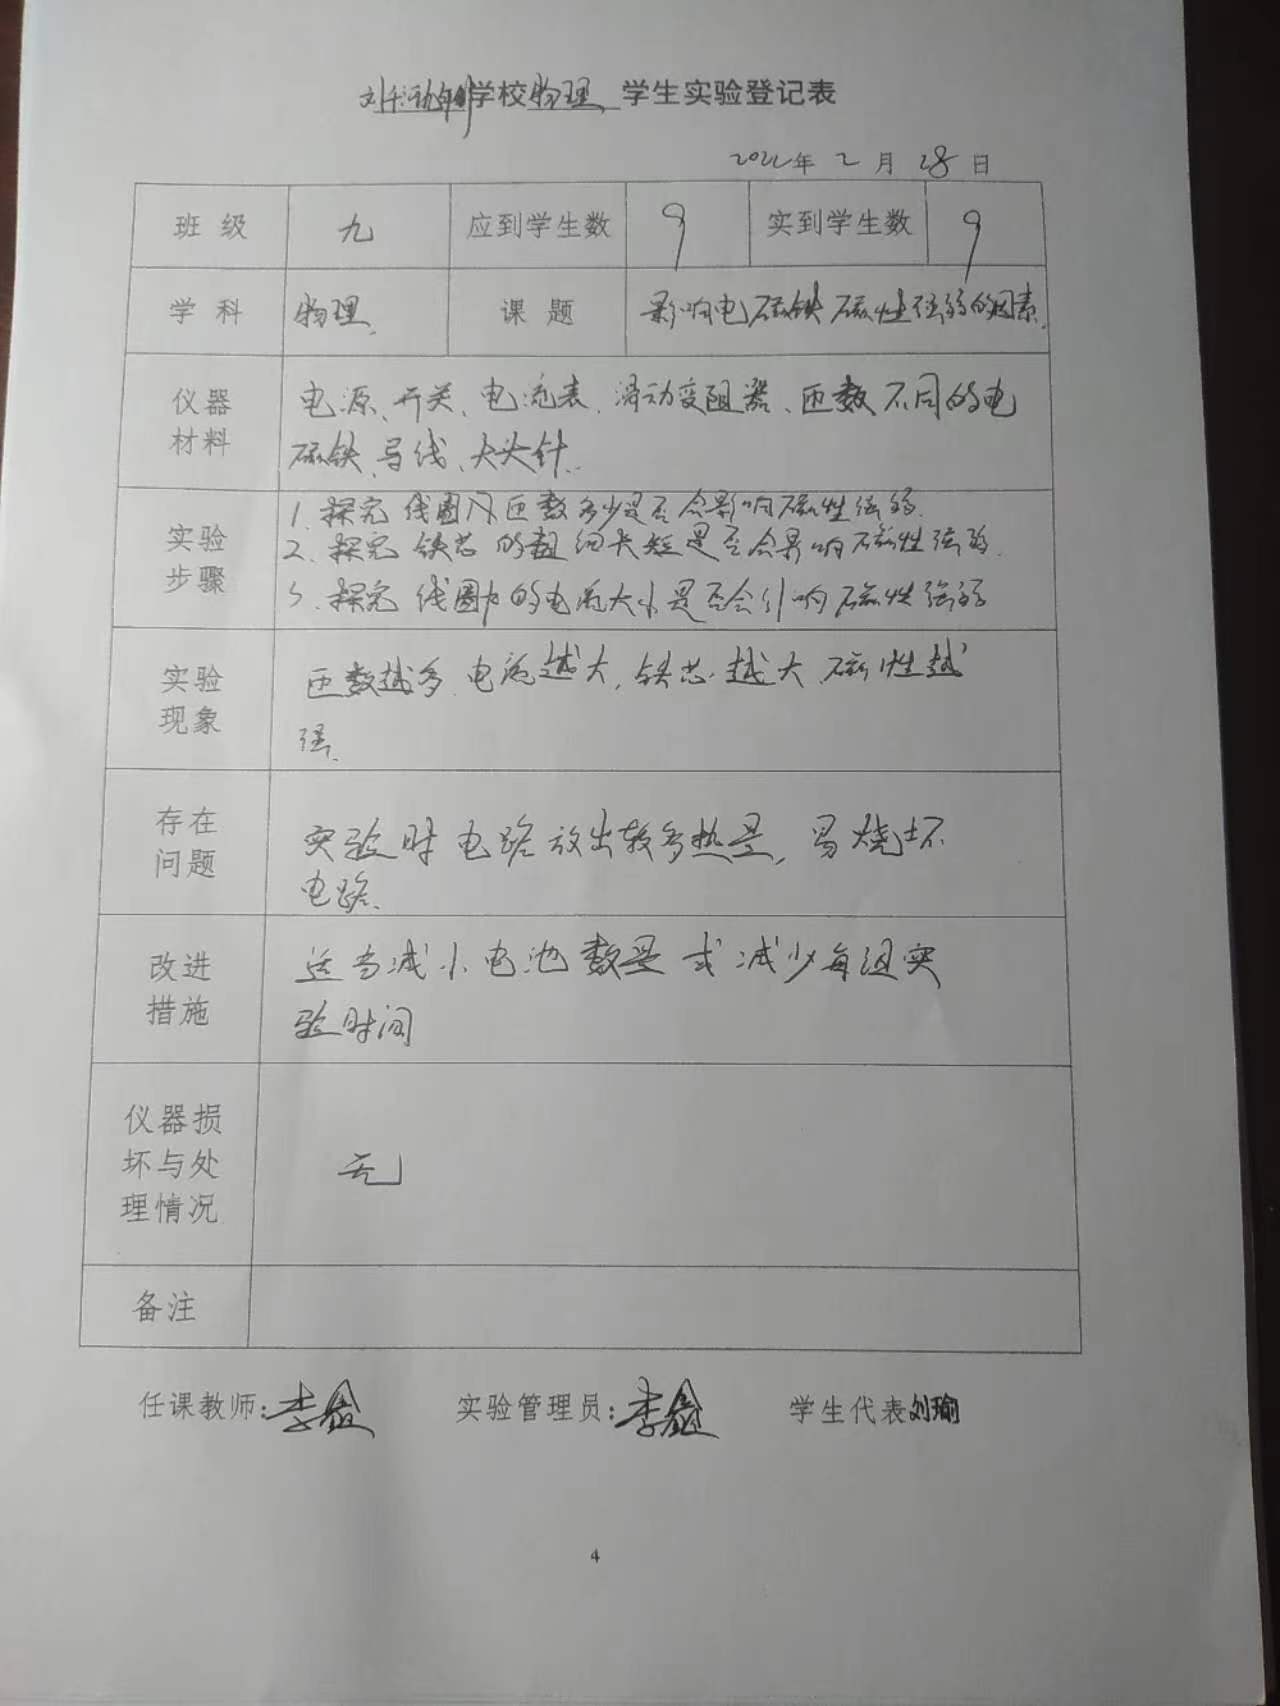 学校物理 学生实验登记表
2022年 2 月 28 日
班 级 九 应到学生数 9 实到学生数 9
学 科 物理. 课 题 影响电磁铁磁性强弱的因素.
仪器材料 电源、开关、电流表、滑动变阻器、匝数不同的电
磁铁、导线、大头针.
实验步骤 1. 探究线圈 匝数多少是否会影响磁性强弱.
2. 探究铁芯的粗细长短是否会影响磁性强弱.
3. 探究线圈内的电流大小是否会引响磁性强弱
实验现象 匝数越多、电流越大, 铁芯越大、磁性越
强.
存在问题 实验时电路放出较多热量, 易烧坏
电路.
改进措施 适当减小电池数量或减少每组实
验时间
仪器损坏与处理情况 无
备注
任课教师: 李 实验管理员: 李 学生代表刘瑜
4